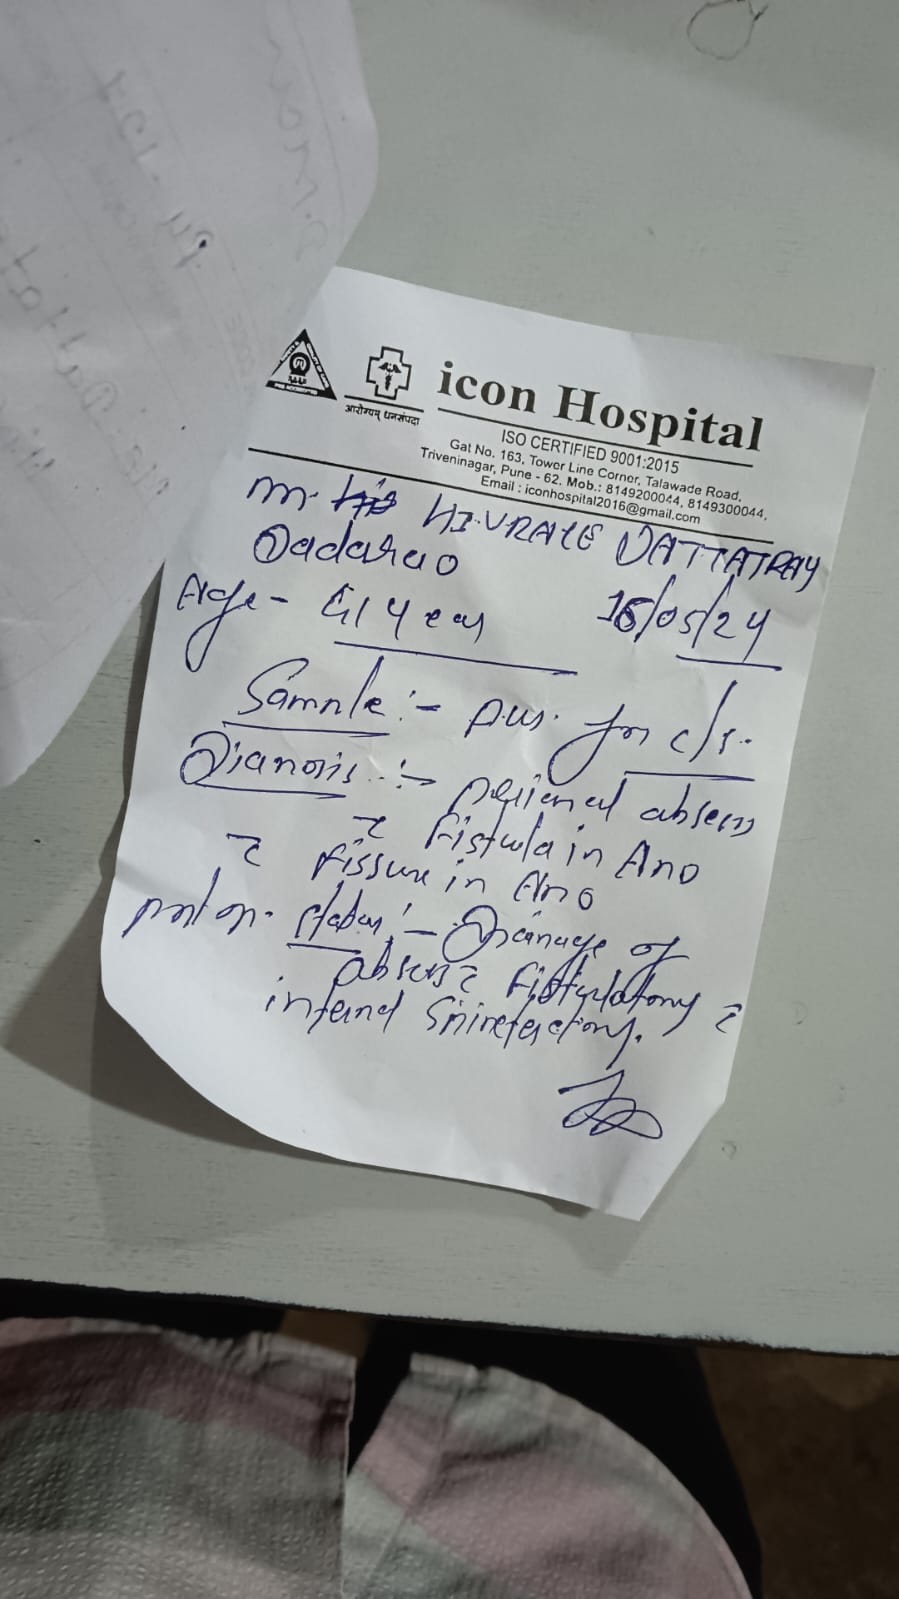 icon Hospital
आरोग्यम् धनसंपदा
ISO CERTIFIED 9001:2015
Gat No. 163, Tower Line Corner, Talawade Road,
Triveninagar, Pune - 62. Mob.: 8149200044, 8149300044,
Email : iconhospital2016@gmail.com
DATTATRAY
Dadarao
Age - 41 year 16/05/24
Sample :- pus. for c/s.
Dianosis :- perianal absess
c̄ Fistula in Ano
c̄ Fissure in Ano
post op. status :- Drainage of
absess c̄ Fistulatomy c̄
internal